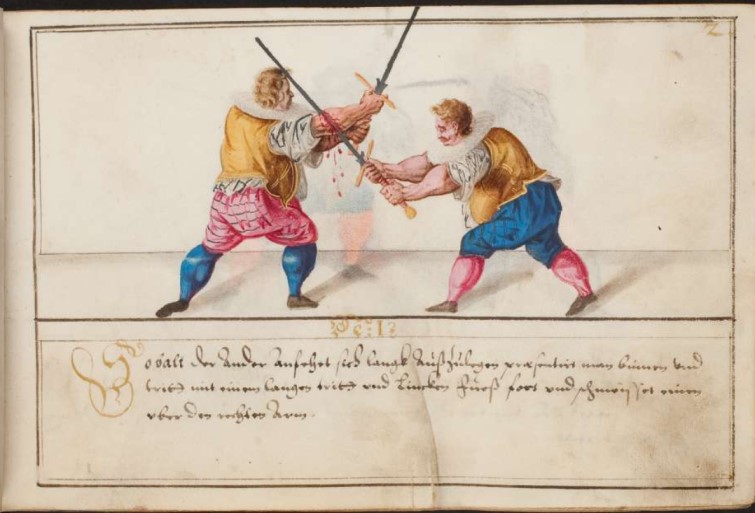 2
So balt der ander anfehet sich langk außzulegen præsentirt man binnen und
tritt mit einem langen tritt und lincken fueß fort und schmeisset einen
vber den rechten Arm.